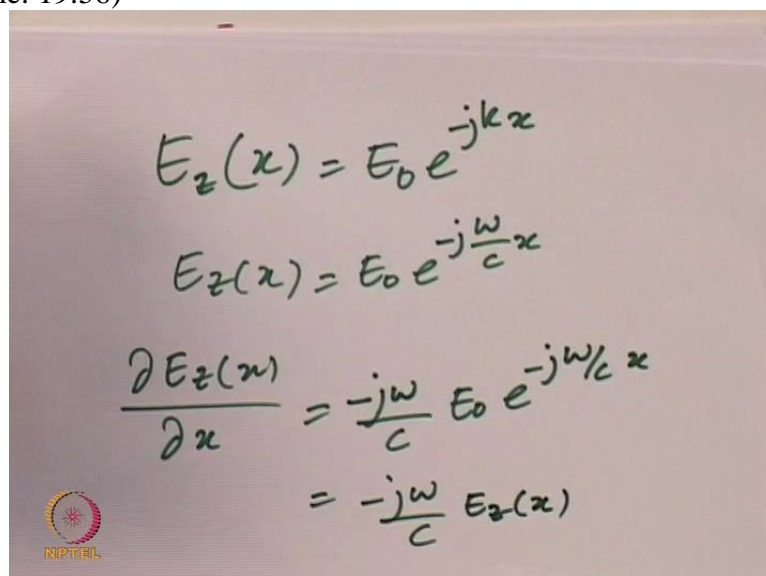 E_z(x) = E_0 e^{-jkx}
E_z(x) = E_0 e^{-j\frac{ω}{c}x}
\frac{∂E_z(x)}{∂x} = \frac{-jω}{c} E_0 e^{-jω/c x}
= \frac{-jω}{c} E_z(x)
NPTEL